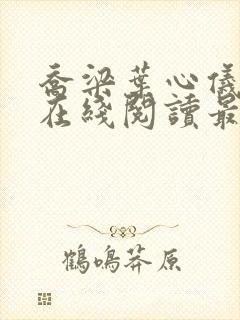 喬梁葉心儀
在綫閱讀最
鶴鳴莽原